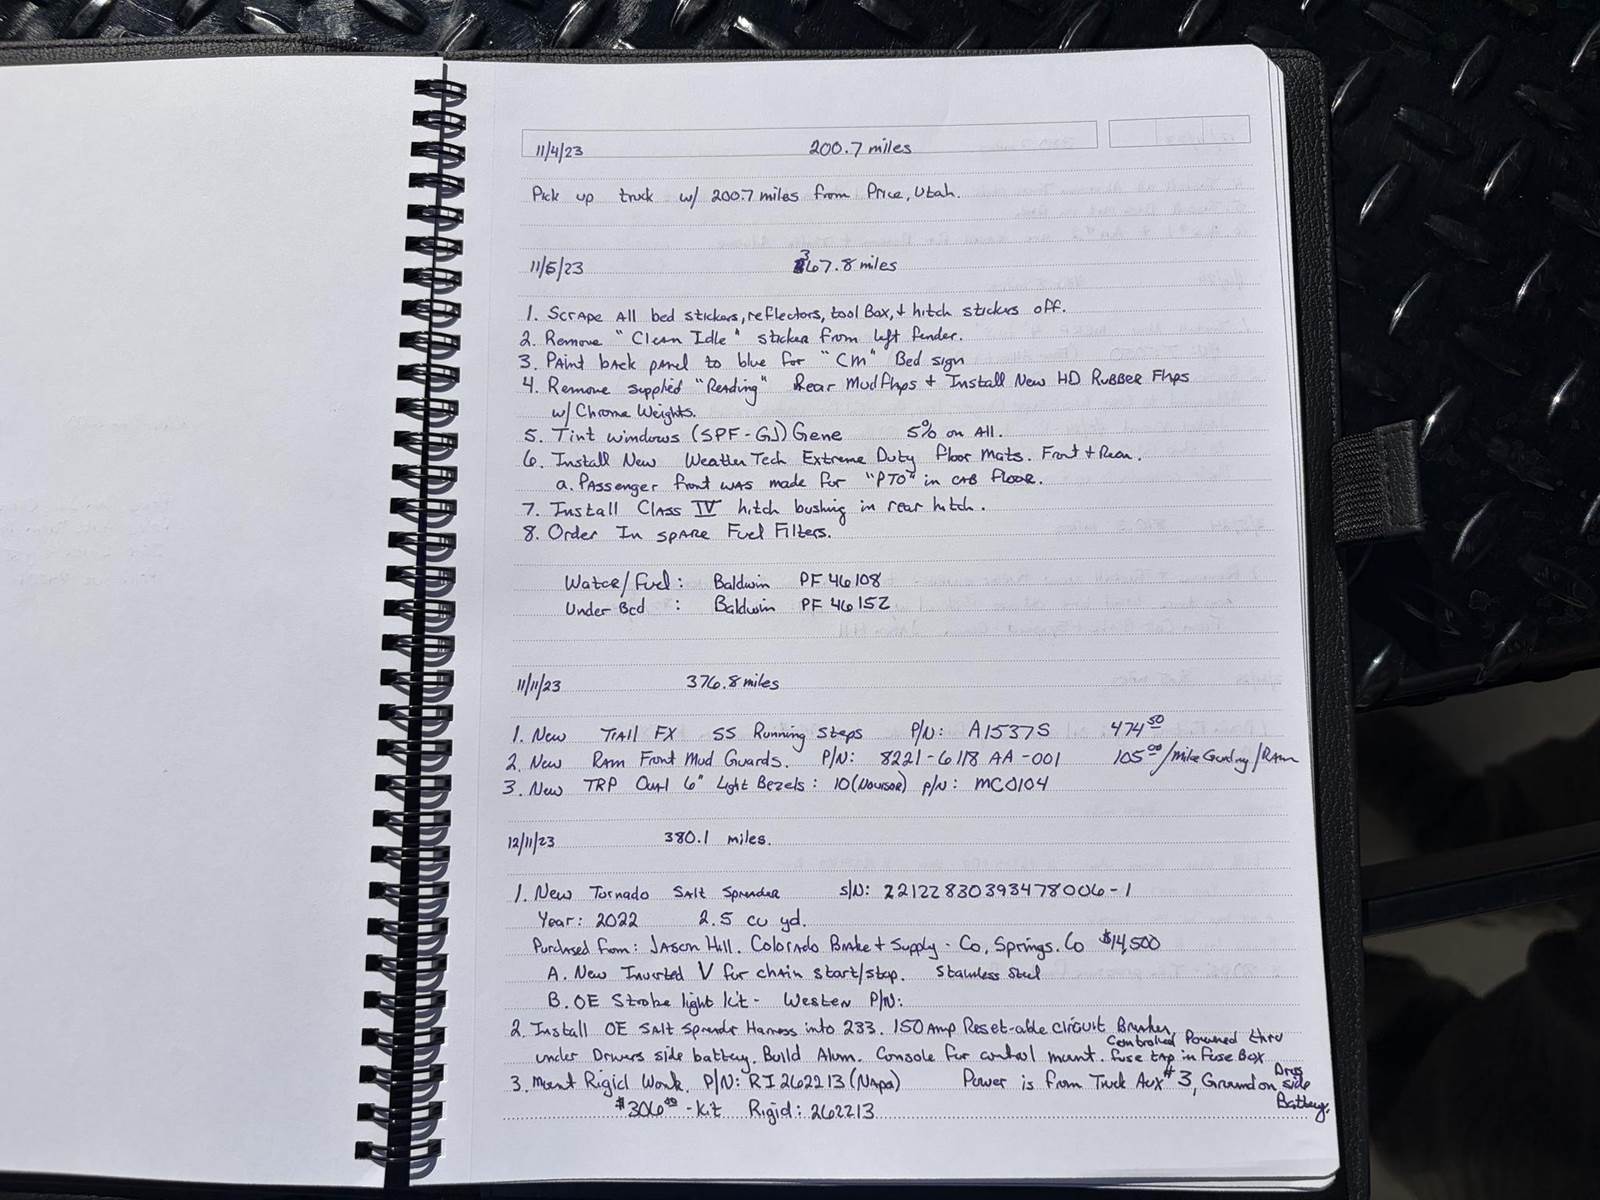 11/4/23 200.7 miles
Pick up truck w/ 200.7 miles from Price, Utah.
11/5/23 367.8 miles
1. Scrape All bed stickers, reflectors, tool Box, + hitch stickers off.
2. Remove "Clean Idle" sticker from left fender.
3. Paint back panel to blue for "CM" Bed sign
4. Remove supplied "Reading" Rear Mudflaps + Install New HD Rubber Flaps
w/ Chrome Weights.
5. Tint windows (SPF-GJ) Gene 5% on All.
6. Install New WeatherTech Extreme Duty floor mats. Front + Rear.
a. Passenger front was made for "PTO" in cab floor.
7. Install Class IV hitch bushing in rear hitch.
8. Order In spare Fuel Filters.
Water/Fuel: Baldwin PF 46108
Under Bed : Baldwin PF 46152
11/11/23 376.8 miles
1. New Trail FX SS Running Steps P/N: A1537S 474.50
2. New Ram Front Mud Guards. P/N: 8221-6118 AA-001 105.00/Mike /RAM
3. New TRP Oval 6" Light Bezels: 10 P/N: MC0104
12/11/23 380.1 miles.
1. New Tornado Salt Spreader S/N: 22122830393478006-1
Year: 2022 2.5 cu yd.
Purchased from: Jason Hill. Colorado Brake + Supply - Co, Springs. Co $14,500
A. New Inverted V for chain start/stop. Stainless Steel
B. OE Strobe light kit - Western P/N:
2. Install OE Salt Spreader Harness into 233. 150 Amp Reset-able circuit Breaker,
under Drivers side battery. Build Alum. Console for control mount. Controlled Powered thru
fuse tap in Fuse Box
3. Mount Rigid Work. P/N: RI 262213 (Napa) Power is from Truck Aux #3, Ground on Drvs side
Battery.
$306.00 - Kit Rigid: 262213